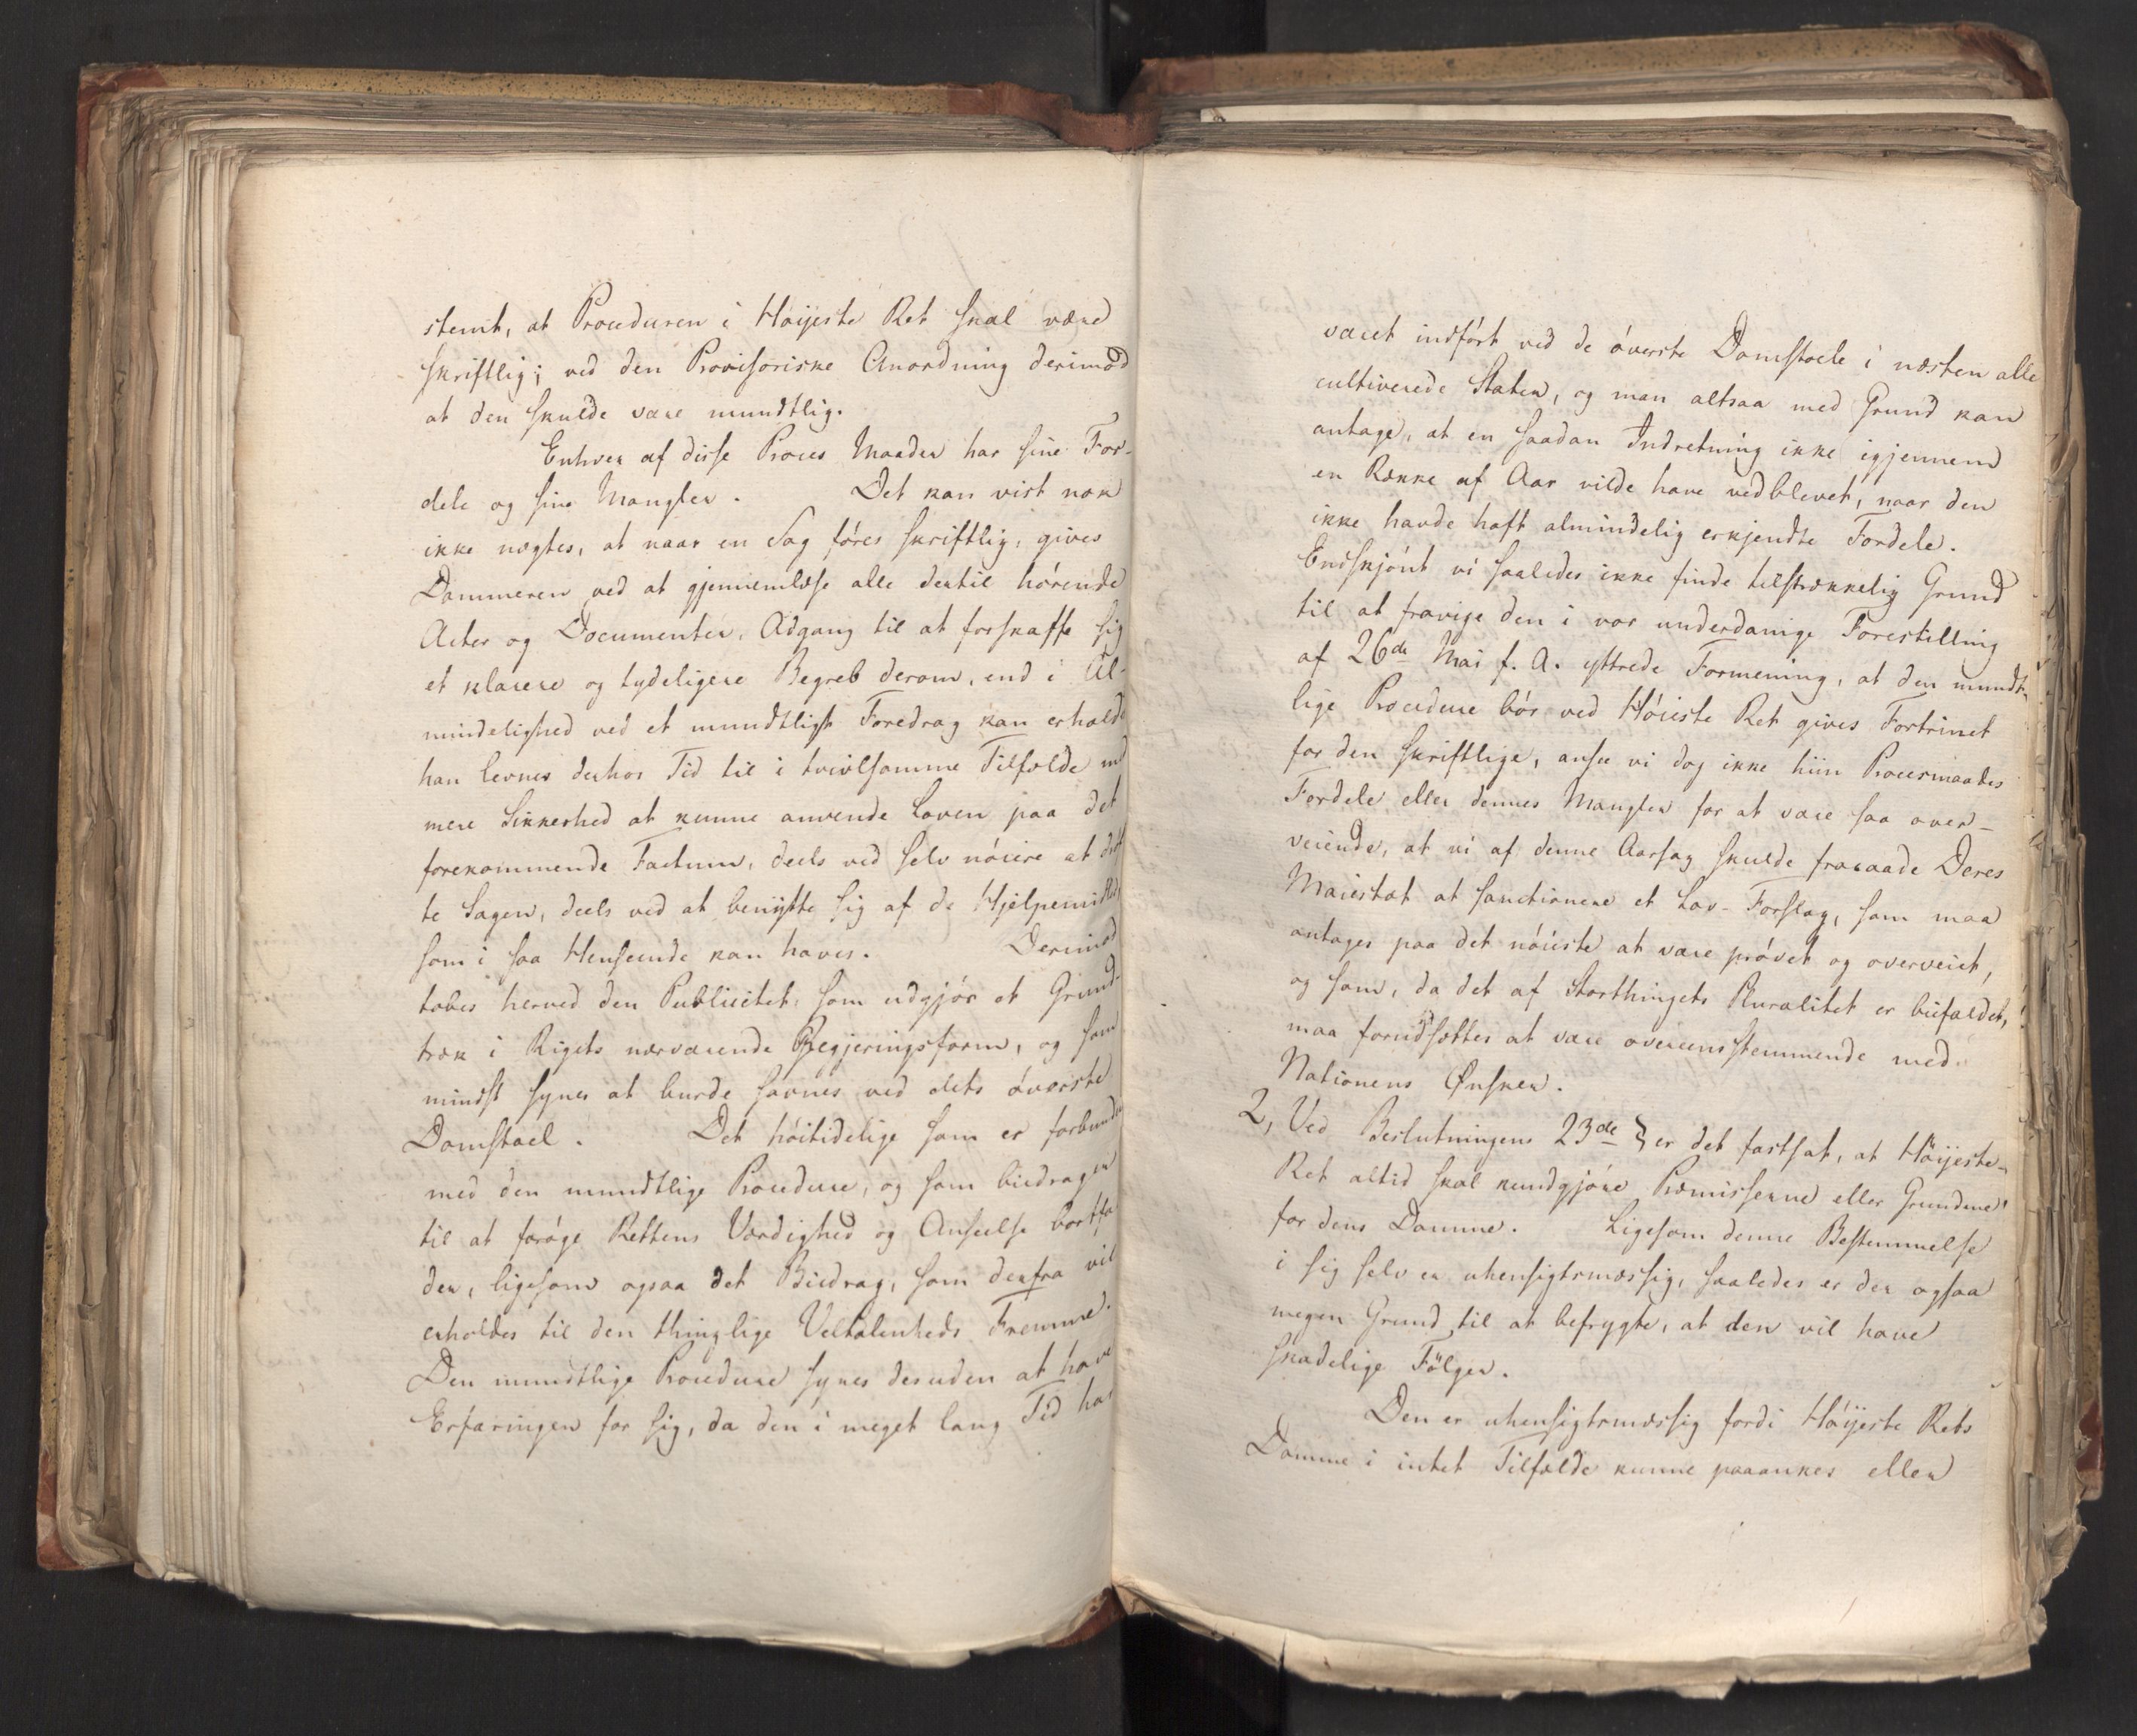 stemt, at Proceduren i Høijeste Ret skal være
skriftlig; ved den Provisoriske Anordning derimod
at den skulde være mundtlig.
Enhver af disse Proces Maader har sine For-
dele og sine Mangler. Det kan vist nok
ikke negtes, at naar en Sag føres skriftlig, gives
Dommeren ved at gjennemlæse alle dertil hørende
Acter og Documenter, Adgang til at forskaffe sig
et klarere og tydeligere Begreb derom, end i Al-
mindelighed ved et mundtligt Foredrag kan erholde
han levnes derhos Tid til i tvivlsomme Tilfælde med
mere Sikkerhed at kunne anvende Loven paa det
forekommende Factum, deels ved selv nøiere at drøf
te Sagen, deels ved at benytte sig af de Hjelpemidler
som i saa Henseende kan haves. Derimod
tabes herved den Publicitet, som udgjør et Grund-
træk i Rigets nærværende Regjeringsform, og som
mindst synes at burde savnes ved dets øverste
Domstoel. Det høitidelige som er forbunden
med den mundtlige Procedure, og som biedrager
til at forøge Rettens Værdighed og Anseelse bortfa
der, ligesom ogsaa det Biedrag, som derfra vil
erholdes til den thinglige Veltalenheds Fremme.
Den mundtlige Procedure synes desuden at have
Erfaringen for sig, da den i meget lang Tid har
været indført ved de øverste Domstoele i næsten alle
cultiverede Stater, og man altsaa med Grund kan
antage, at en saadan Indretning ikke igjennem
en Række af Aar vilde have vedblevet, naar den
ikke havde haft almindelig erkjendte Fordele.
Endskjønt vi saaledes ikke finde tilstrækkelig Grund
til at fravige den i vor underdanige Forestilling
af 26de Mai f. A. yttrede Formening, at den mundt-
lige Procedure bør ved Høieste Ret gives Fortrinet
for den skriftlige, ansee vi dog ikke hiin Procesmaades
Fordele eller dennes Mangler for at være saa over-
veiende, at vi af denne Aarsag skulde fraraade Deres
Maiestæt at sanctionere et Lov-Forslag, som maa
antages paa det nøieste at være prøvet og overveiet,
og som, da det af Storthingets Pluralitet er biefaldet,
maa forudsættes at være overeensstemmende med
Nationens Ønsker.
2, Ved Beslutningens 23de § er det fastsat, at Høijeste-
Ret altid skal kundgjøre Præmisserne eller Grundene
for dens Domme. Ligesom denne Bestemmelse
i sig selv er uhensigtsmæssig, saaledes er der ogsaa
megen Grund til at befrygte, at den vil have
skadelige Følger.
Den er uhensigtsmæssig fordi Høijeste Rets
Domme i intet Tilfælde kunne paaankes eller